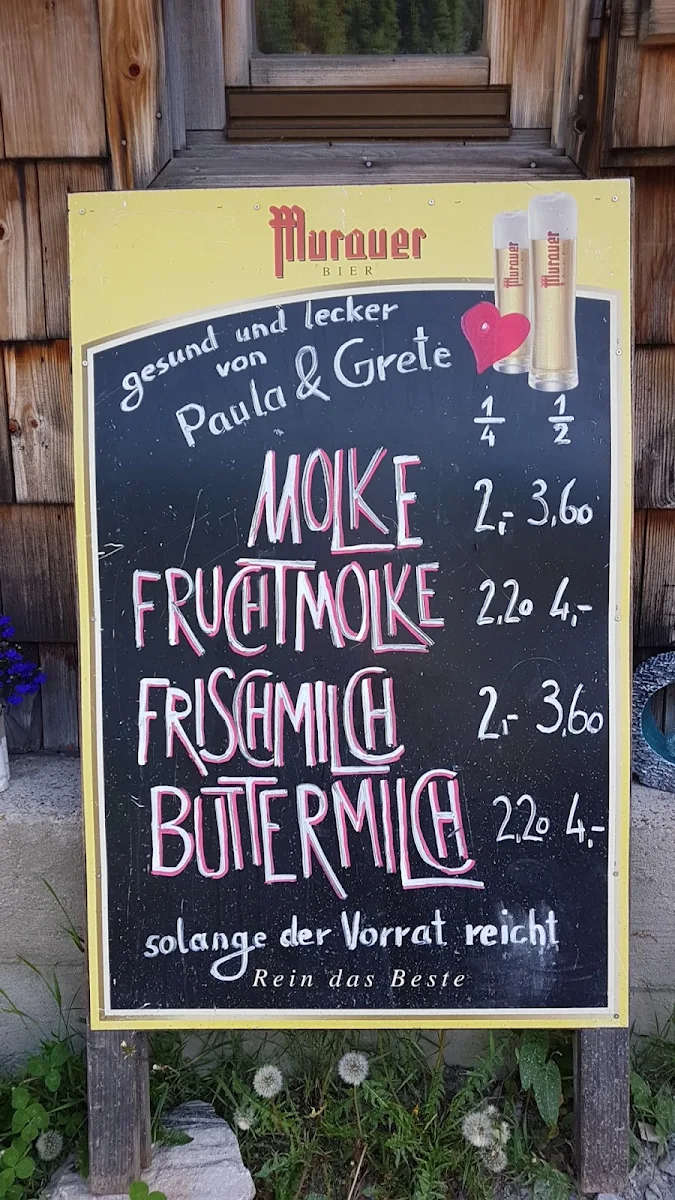 Murauer
BIER
Murauer
Murauer
gesund und lecker
von
Paula & Grete
1/4 1/2
MOLKE 2,- 3,60
FRUCHTMOLKE 2,20 4,-
FRISCHMILCH 2,- 3,60
BUTTERMILCH 2,20 4,-
solange der Vorrat reicht
Rein das Beste